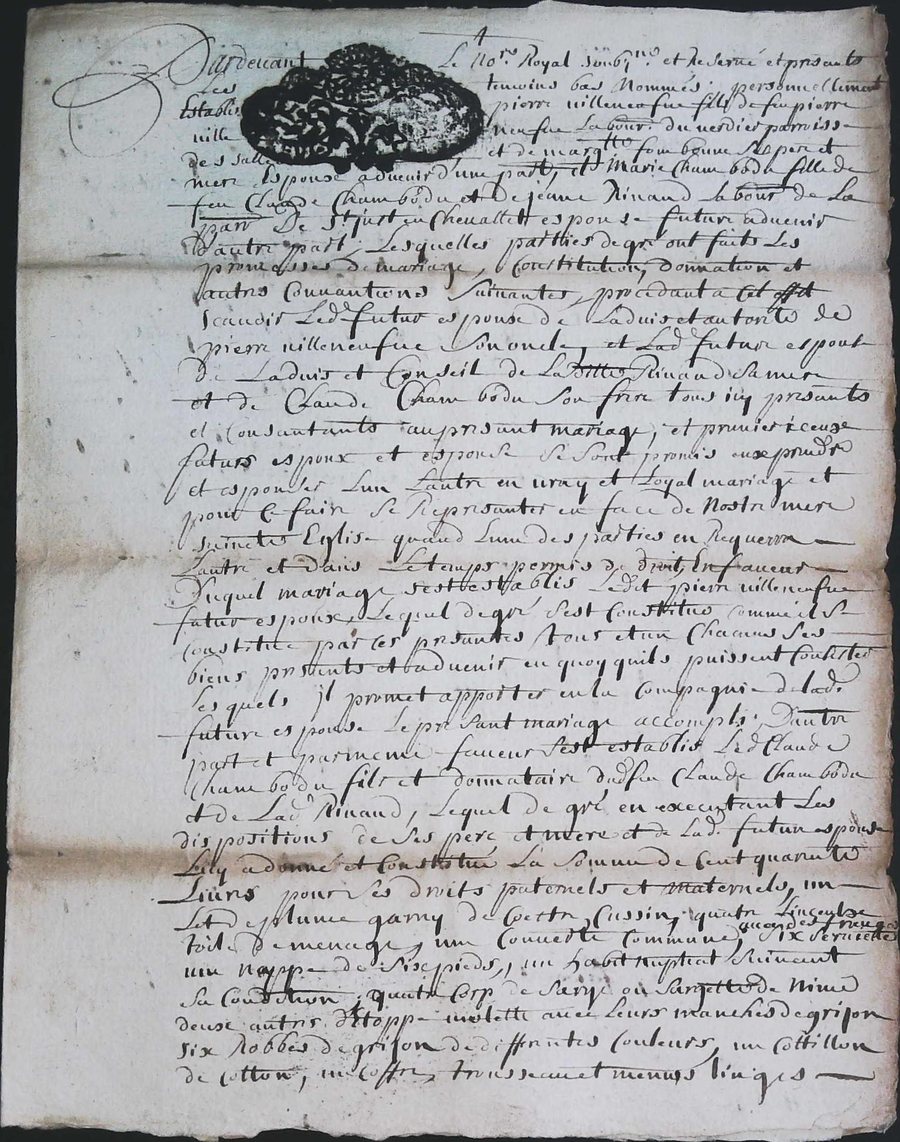 Pardevant Le No.re Royal soub.né et Reservé et presents
Les temoins bas Nommés, personnellement
Establis pierre villeneufue fils de feu pierre
ville neufue Labour. du verdier parroisse
des salle et de margtte foubonne Ses pere et
mere Espouse aduenir d'une part, et Marie Chambodu fille de
feu Claude Chambodu et de jeane Rinaud labour de La
parr De St just en Cheuallet espouse future aduenir
D'autre part, Lesquelles partties de gré ont faits Les
promesses de mariage, Constitution, donnation et
autres Conuantions Suiuantes, procedant a cet effet
Scauoir Led. futur espouse de Laduis et autorité de
pierre villeneufue Son oncle, et Lad. future espouse
De Laduis et Conseil de La Rinaud Sa mere
et de Claude Chambodu Son frere tous icy presants
et Consantants au presant mariage, et premier iceux
futurs espoux et espouse Se Sont promis eux prendre
et espouser Lun Lautre en uray et Loyal mariage et
pour Ce faire Se Representer en face de Nostre mere
saincte Eglise quand Lune des parties en Requerra
Lautre et dans Le temps permis de droit, En faueur
Duquel mariage sest establis Ledit pierre uilleneufue
futur espoux, Lequel de gré s'est Constitué comme il Se
constitue par Ces presantes tous et un Chacuns Ses
biens presants et aduenir en quoy quils puissent Consister
Lesquels Il promet apporter en la Compagnie de lad.
future espouse Le presant mariage accomply. D'autre
part et par meme faueur s'est establis Led Claude
Chambodu fils et donnataire dud feu Claude Chambodu
et de Lad. Rinaud, Lequel de gré en executant Les
dispositions de Ses pere et mere et de Lad. future espouse
Luy a donné et Constitué La Somme de Cent quarante
Liures pour Ses droits paternels et maternels, un
Let de plume garny de Coettre, Cussin, quatre Linceulx
auec des franges
toile De menage, une Couuerte Commune, Six Seruiette
une Nappe de Six pieds, un habit Nuptial Suiuant
Sa Condition, quatre Corp de Sarge ou Sargette de Nime
deux autres d'Etoppe molette auec Leurs manches de grison
Six Robbes de grison de differentes Couleurs, un Cottillon
de Cotton, un Coffre, trousseau et menus linges